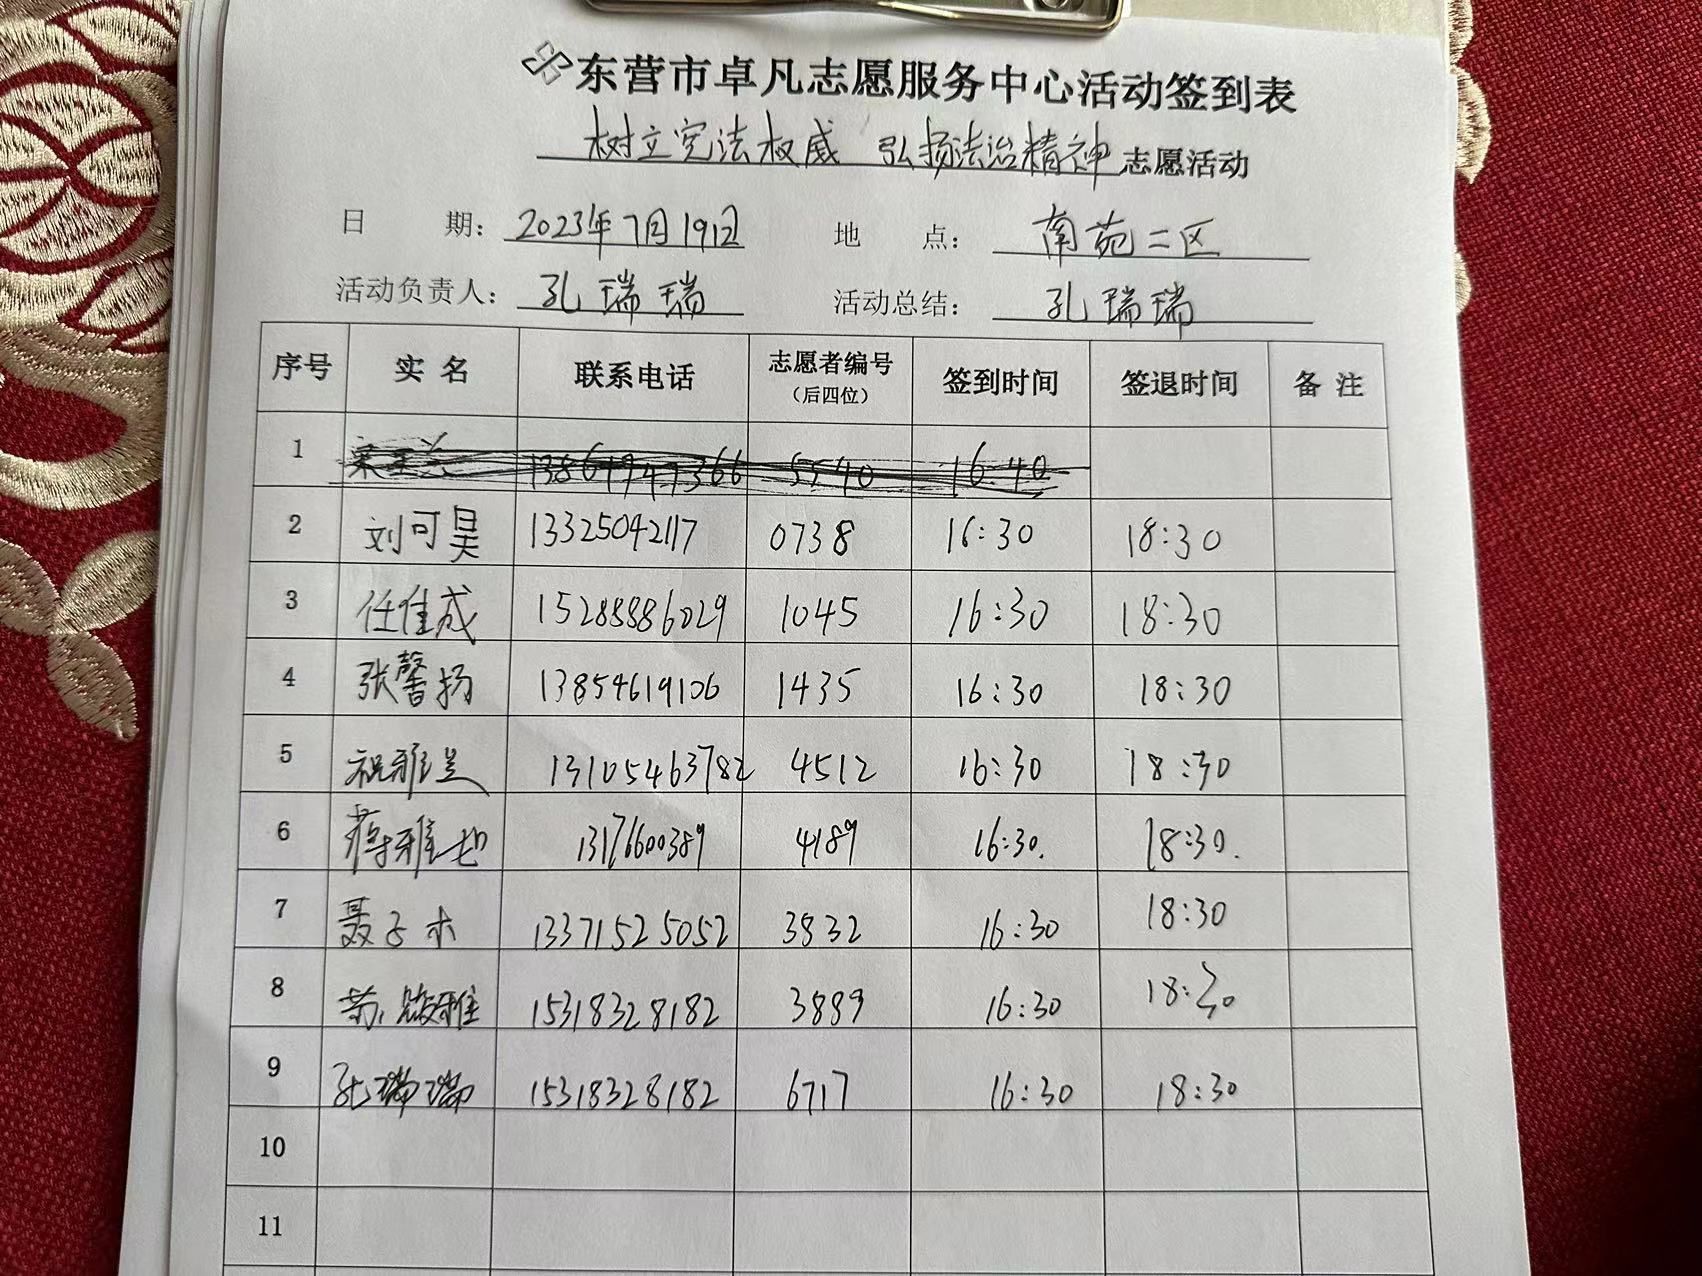 东营市卓凡志愿服务中心活动签到表
树立宪法权威 弘扬法治精神 志愿活动
日 期: 2023年7月19日 地 点: 南苑二区
活动负责人: 孔瑞瑞 活动总结: 孔瑞瑞
序号 实名 联系电话 志愿者编号(后四位) 签到时间 签退时间 备注
1 5540 16:40
2 刘可昊 13325042117 0738 16:30 18:30
3 任佳成 15288886029 1045 16:30 18:30
4 张馨扬 13854619106 1435 16:30 18:30
5 祝雅 13105463782 4512 16:30 18:30
6 蒋雅 13176600389 4189 16:30. 18:30.
7 聂子木 13371525052 3832 16:30 18:30
8 雅 15318328182 3889 16:30 18:30
9 孔瑞瑞 15318328182 6717 16:30 18:30
10
11